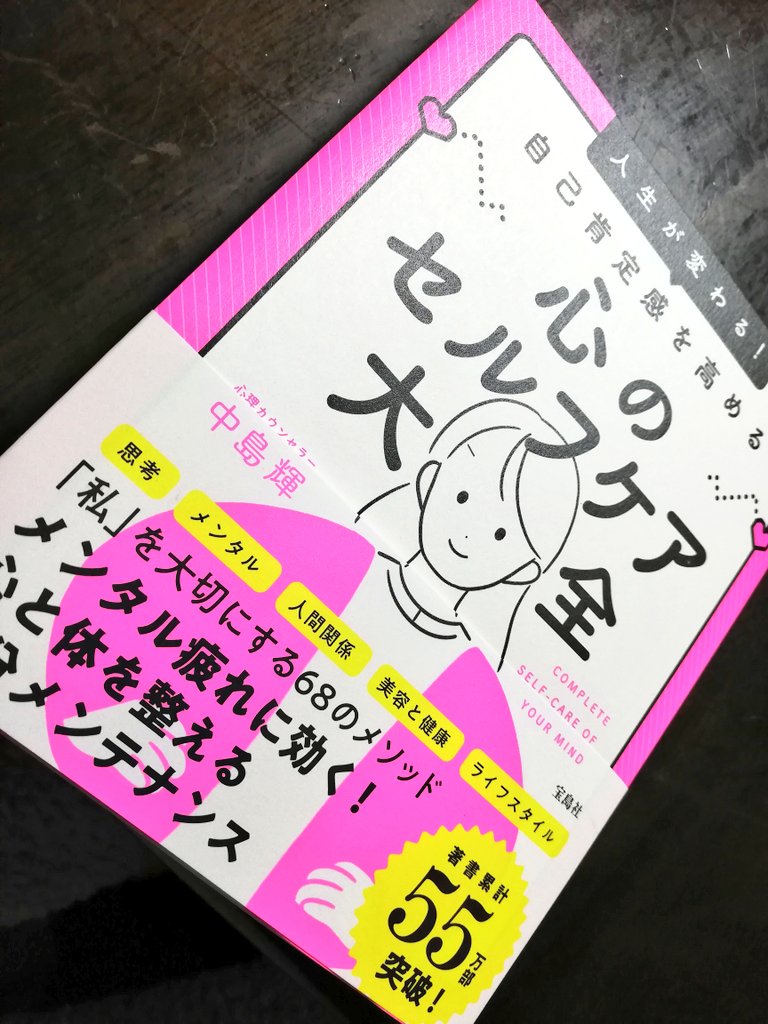 人生が変わる!
自己肯定感を高める
心の
セルフケア
大全
COMPLETE
SELF-CARE OF
YOUR MIND
心理カウンセラー
中島輝
宝島社
思考
メンタル
人間関係
美容と健康
ライフスタイル
「私」を大切にする68のメソッド
メンタル疲れに効く!
心と体を整える
メンテナンス
著書累計
55万部
突破!